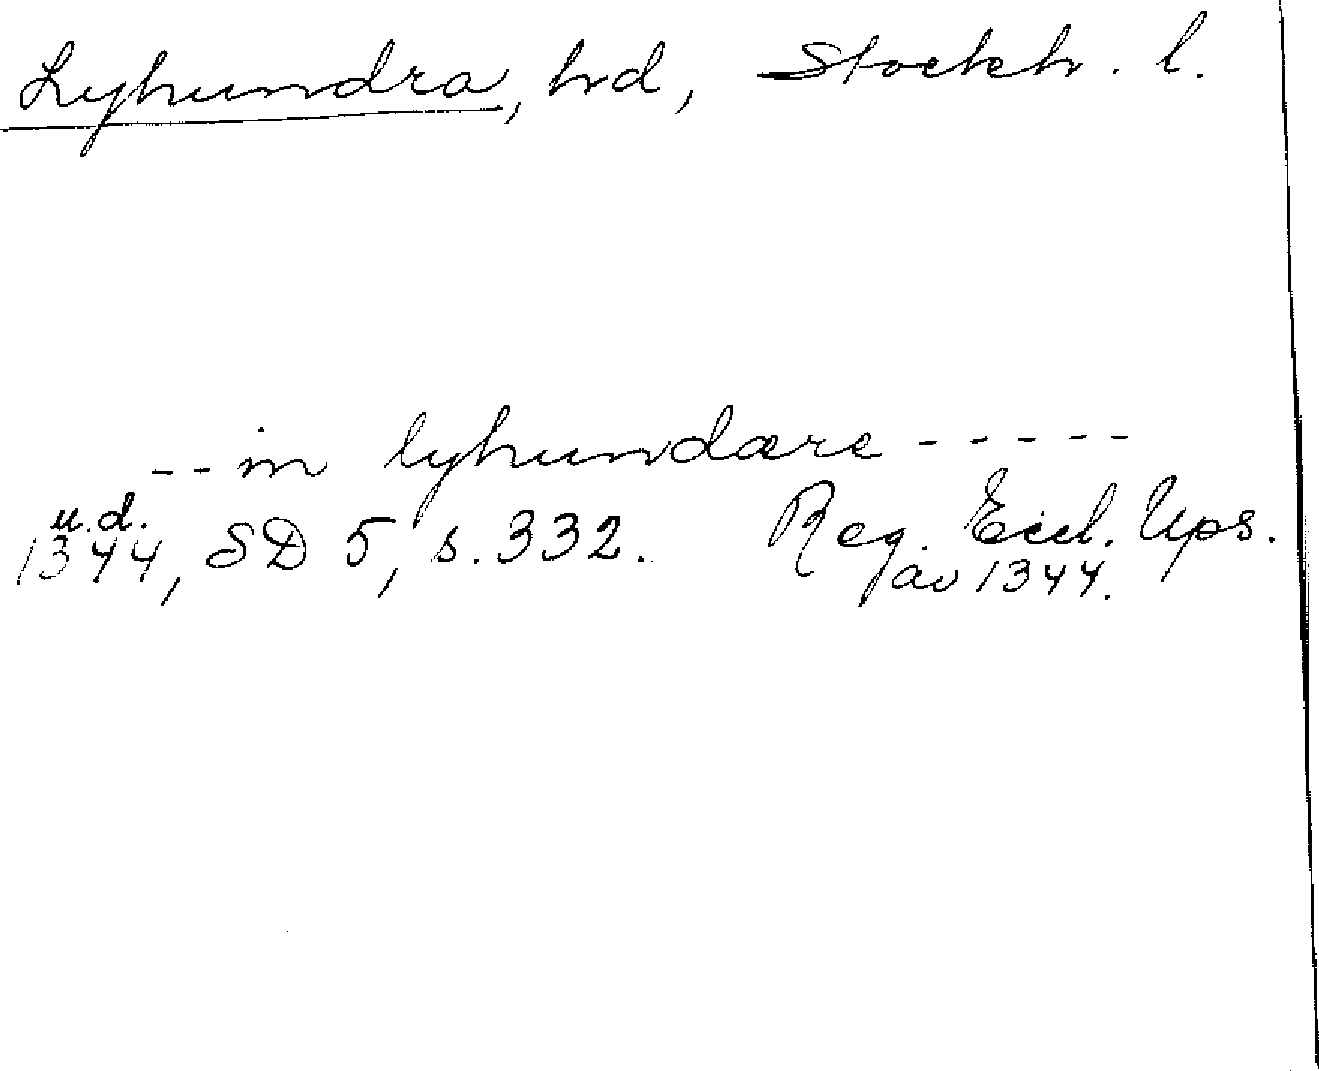 Lyhundra, hd, Stockh. l.
-- in lyhundære -----
u.d.
1344, SD 5, s. 332. Reg. Eccl. Ups.
av 1344.